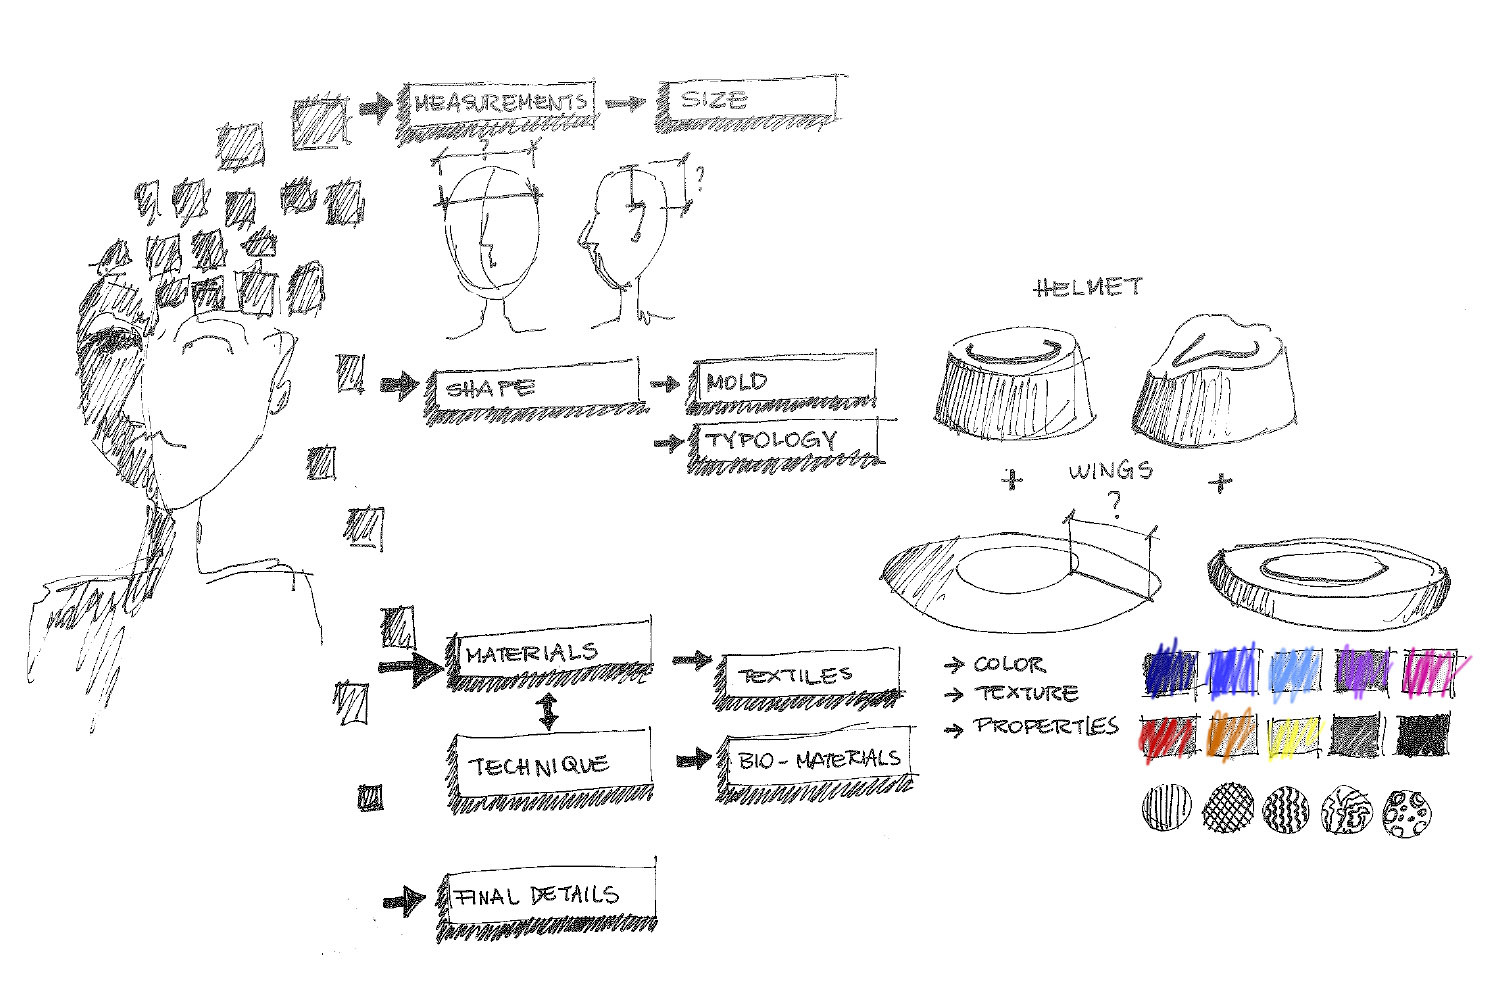 MEASUREMENTS
SIZE
?
?
SHAPE
MOLD
TYPOLOGY
HELMET
+
WINGS
+
?
MATERIALS
TEXTILES
→ COLOR
→ TEXTURE
→ PROPERTIES
TECHNIQUE
BIO-MATERIALS
FINAL DETAILS